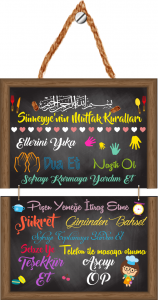 بسم الله الرحمن الرحيم
Sümeyye'nin Mutfak Kuralları
Ellerini Yıka
Dua Et
Nazik Ol
Sofrayı Kurmaya Yardım Et
Pişen Yemeğe İtiraz Etme
Şükret
Gününden Bahset
Teşekkür Et
Telefon ile masaya oturma
Aşçıyı Öp